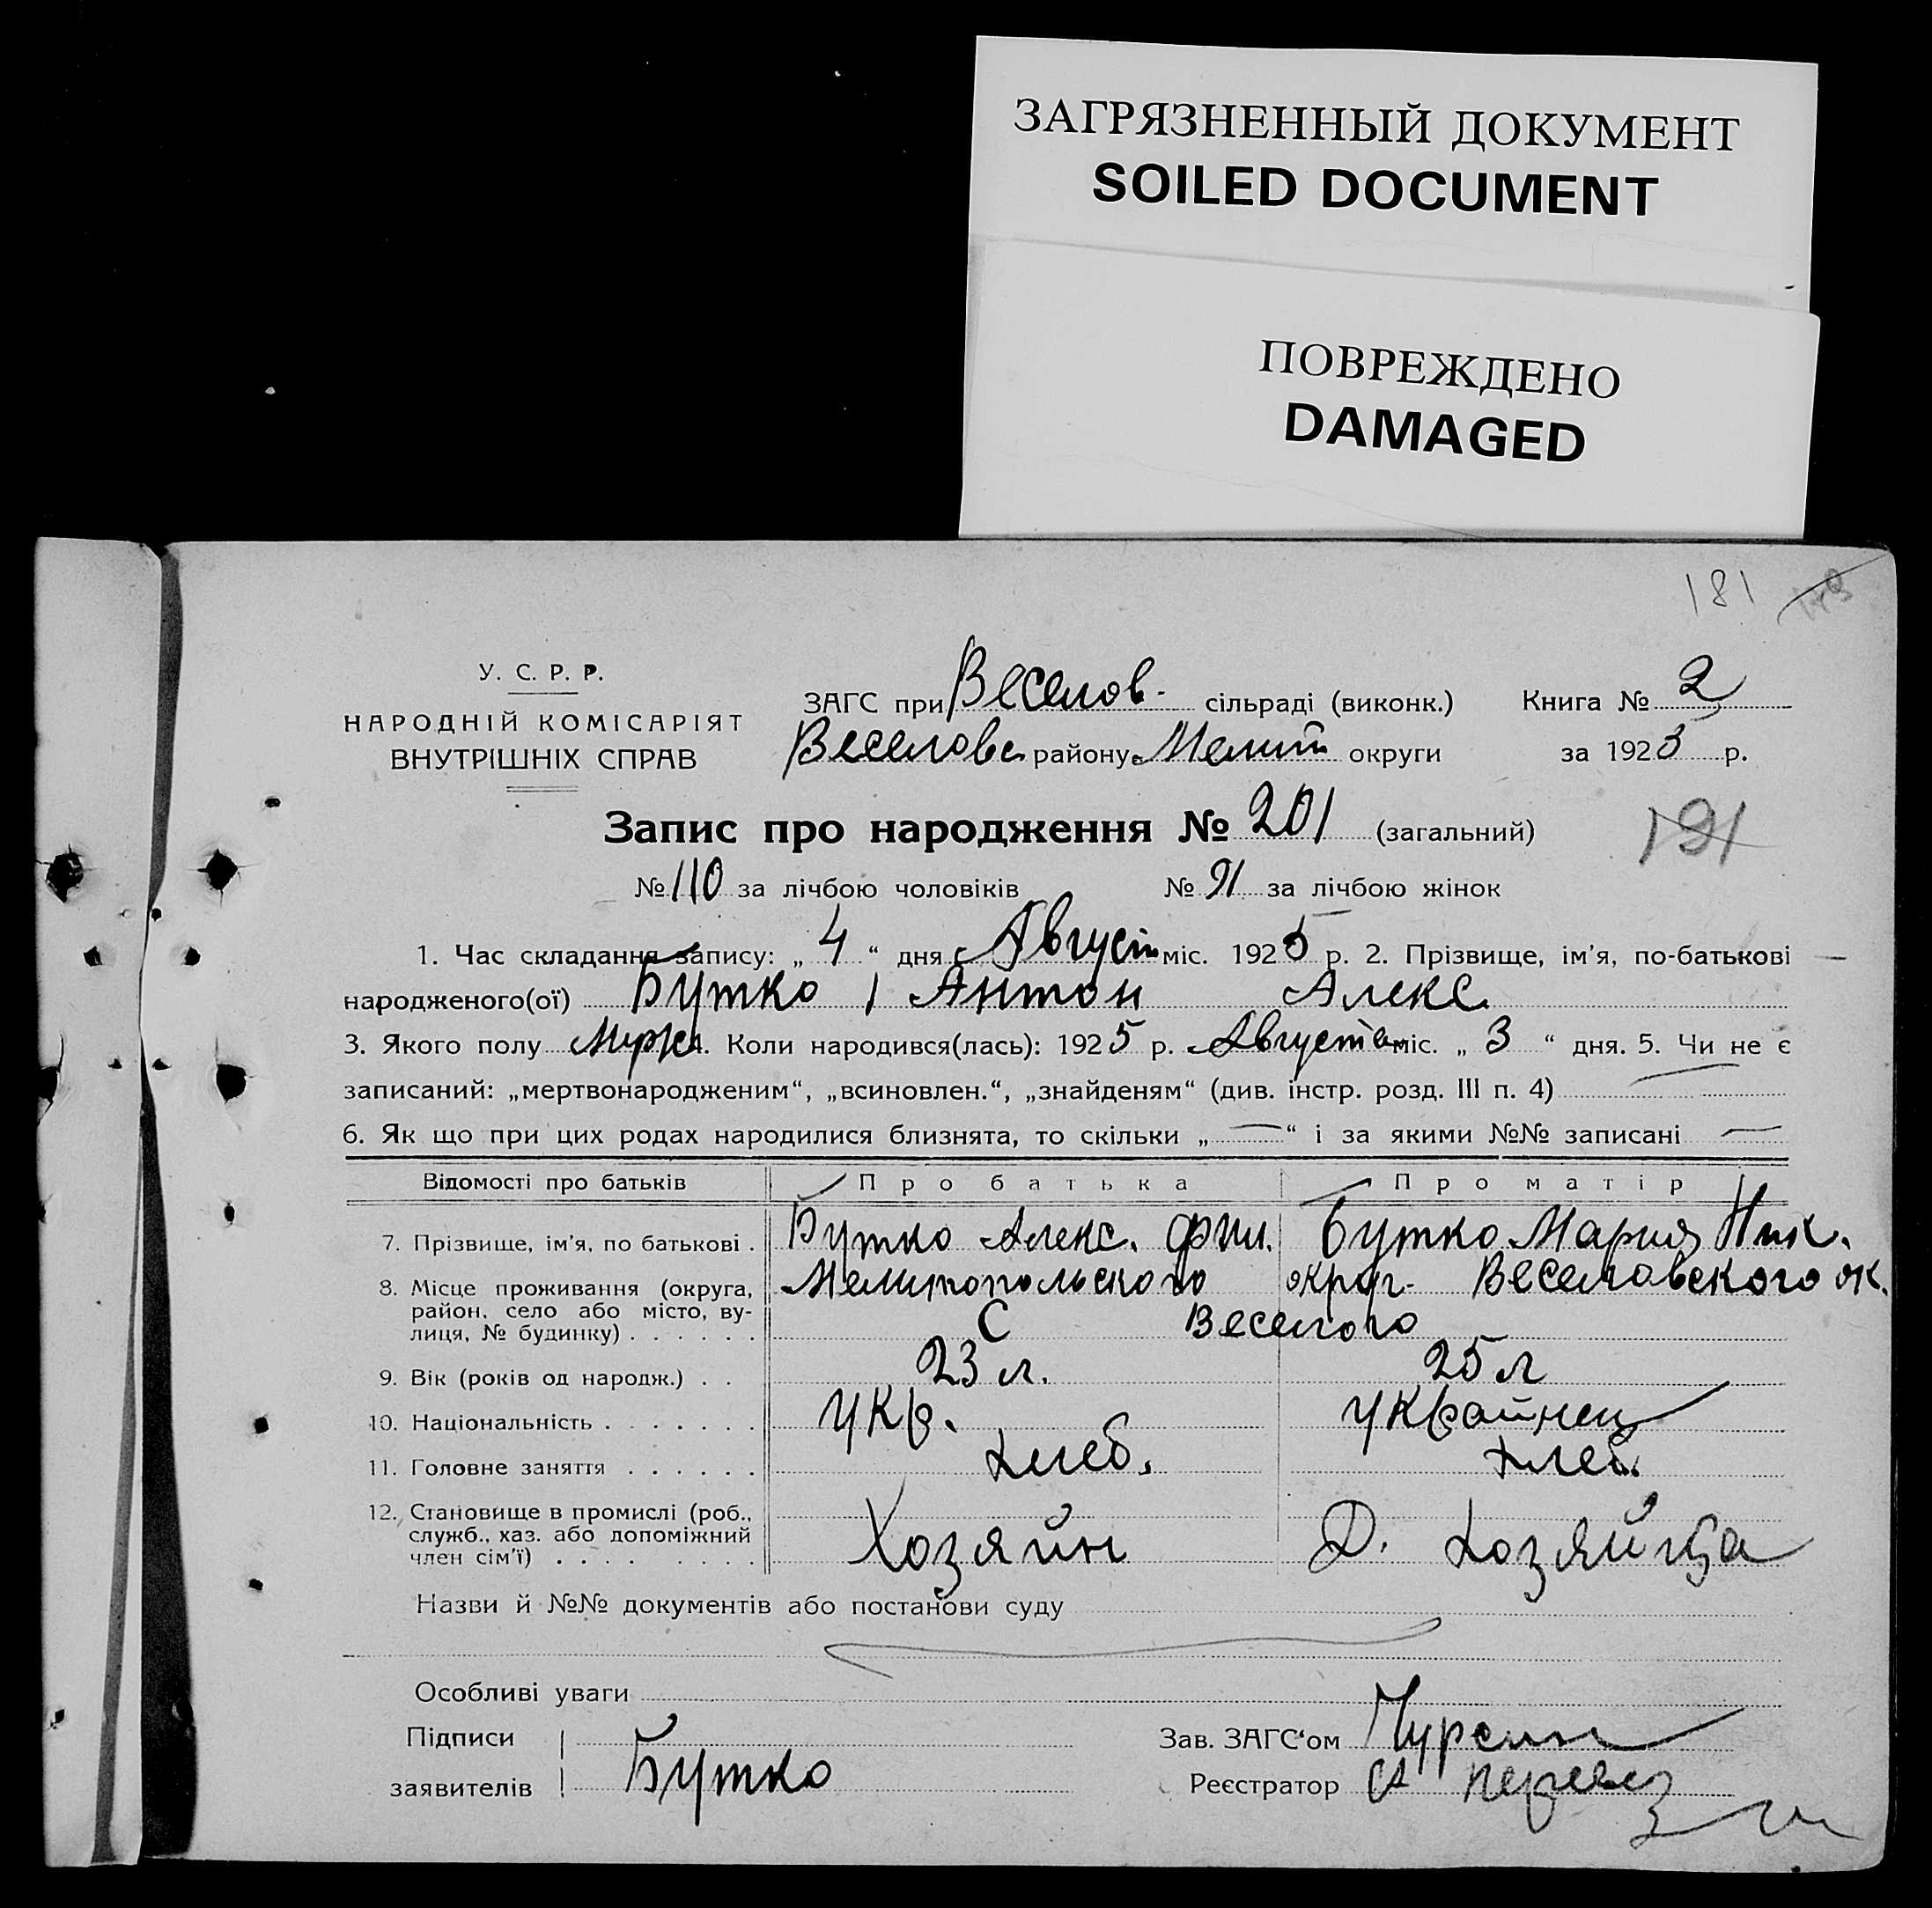 ЗАГРЯЗНЕННЫЙ ДОКУМЕНТ
SOILED DOCUMENT
ПОВРЕЖДЕНО
DAMAGED
181
У. С. Р. Р.
НАРОДНІЙ КОМІСАРІЯТ
ВНУТРІШНІХ СПРАВ
ЗАГС при Веселов- сільраді (виконк.) Книга № 2
Веселовс району Мелит округи за 1925 р.
Запис про народження № 201 (загальний)
191
№ 110 за лічбою чоловіків № 91 за лічбою жінок
1. Час складання запису: „ 4 “ дня Август міс. 1925 р. 2. Прізвище, ім’я, по-батькові
народженого(ої) Бутко Антон Алекс.
3. Якого полу Мужс. Коли народився(лась): 1925 р. Августа міс. „ 3 “ дня. 5. Чи не є
записаний: „мертвонародженим“, „всиновлен.“, „знайденям“ (див. інстр. розд. III п. 4)
6. Як що при цих родах народилися близнята, то скільки „ — “ і за якими №№ записані —
Відомості про батьків Про батька Про матір
7. Прізвище, ім’я, по батькові . Бутко Алекс. Фил. Бутко Мария Ник.
8. Місце проживання (округа, Мелитопольского округ- Веселовского ок.
район, село або місто, ву-
лиця, № будинку) . . . . . . С Веселого
9. Вік (років од народж.) . . 23 л. 25 л
10. Національність . . . . . . . Укр. Украинец
11. Головне заняття . . . . . . хлеб. хлеб.
12. Становище в промислі (роб.,
служб., хаз. або допоміжний
член сім’ї) . . . . . . . . Хозяин Д. хозяйка
Назви й №№ документів або постанови суду
Особливі уваги
Підписи Зав. ЗАГС‘ом Чурсин
заявителів Бутко Реєстратор